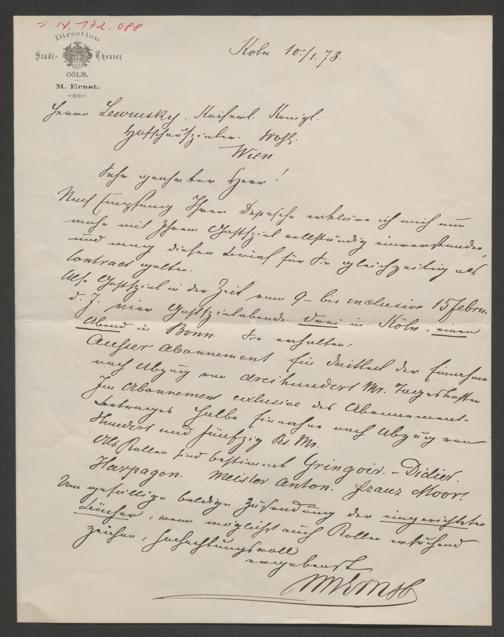 1.14.172.088
Direction
Stadt- Theater
CÖLN.
M. Ernst.
Koln 10/1.78.
Herrn Lewinsky. Kaiserl. Königl.
Hofschauspieler. Wohl.
Wien
Sehr geehrter Herr!
Nach Empfang Ihrer Depesche erkläre ich mich nun
mehr mit Ihrem Gastspiel vollständig einverstanden,
und mag dieser Brief für Sie gleichzeitig als
Contract gelten.
Also Gastspiel in der Zeit vom 9- bis inclusive 15 Februar
d. J. vier Gastspielabende drei in Köln, einen
Abend in Bonn. Sie erhalten:
Außer Abonnement Ein Drittheil der Einnahme
nach Abzug von dreihundert Mr. Tageskosten
Im Abonnement exclusive des Abonnement-
betrages halbe Einnahme nach Abzug von
Hundert und fünfzig Rs. Mr.
Als Rollen sind bestimmt Gringoir. - Didier.
Harpagon. Meister Anton. Franz Moor.
Um gefällige baldige Zusendung der eingerichteten
Bücher, wenn möglichst auch Rollen ersuchend
zeichne, hochachtungsvoll
ergebenst
M Ernst